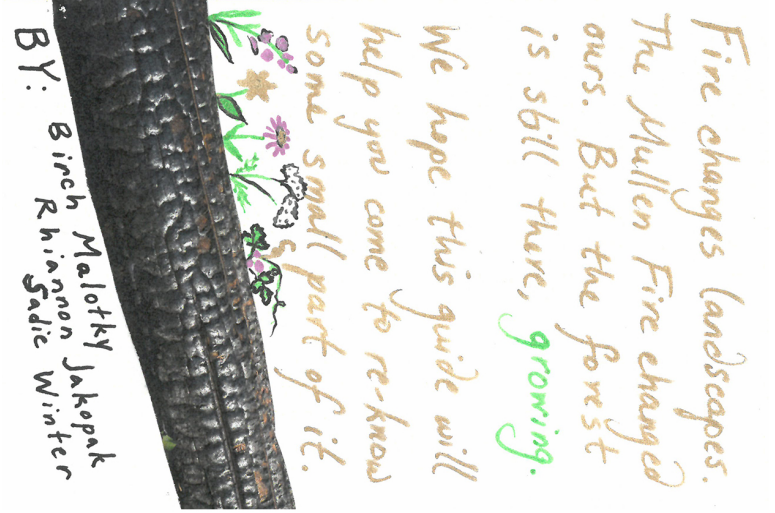 Fire changes landscapes.
The Mullen Fire changed
ours. But the forest
is still there, growing.
We hope this guide will
help you come to re-know
some small part of it.
BY: Birch Malotky
Rhiannon Jakopak
Sadie Winter